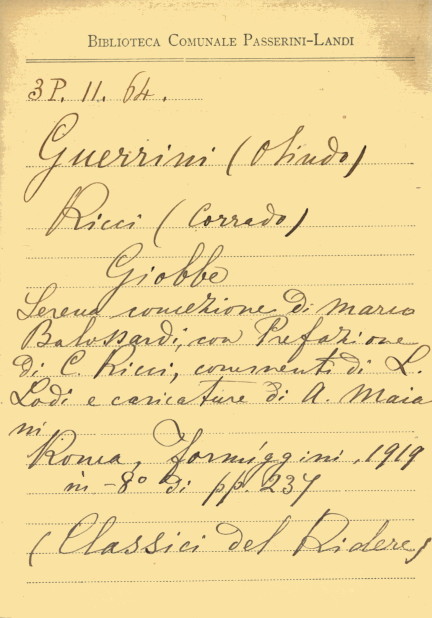 BIBLIOTECA COMUNALE PASSERINI-LANDI
3P. 11. 64.
Guerrini (Olindo)
Ricci (Corrado)
Giobbe
Serena concezione di Marco
Balossardi, con Prefazione
di C. Ricci, commenti di L.
Lodi e caricature di A. Maia
ni
Roma, Formiggini, 1919
in -8° di pp. 237
(Classici del Ridere)